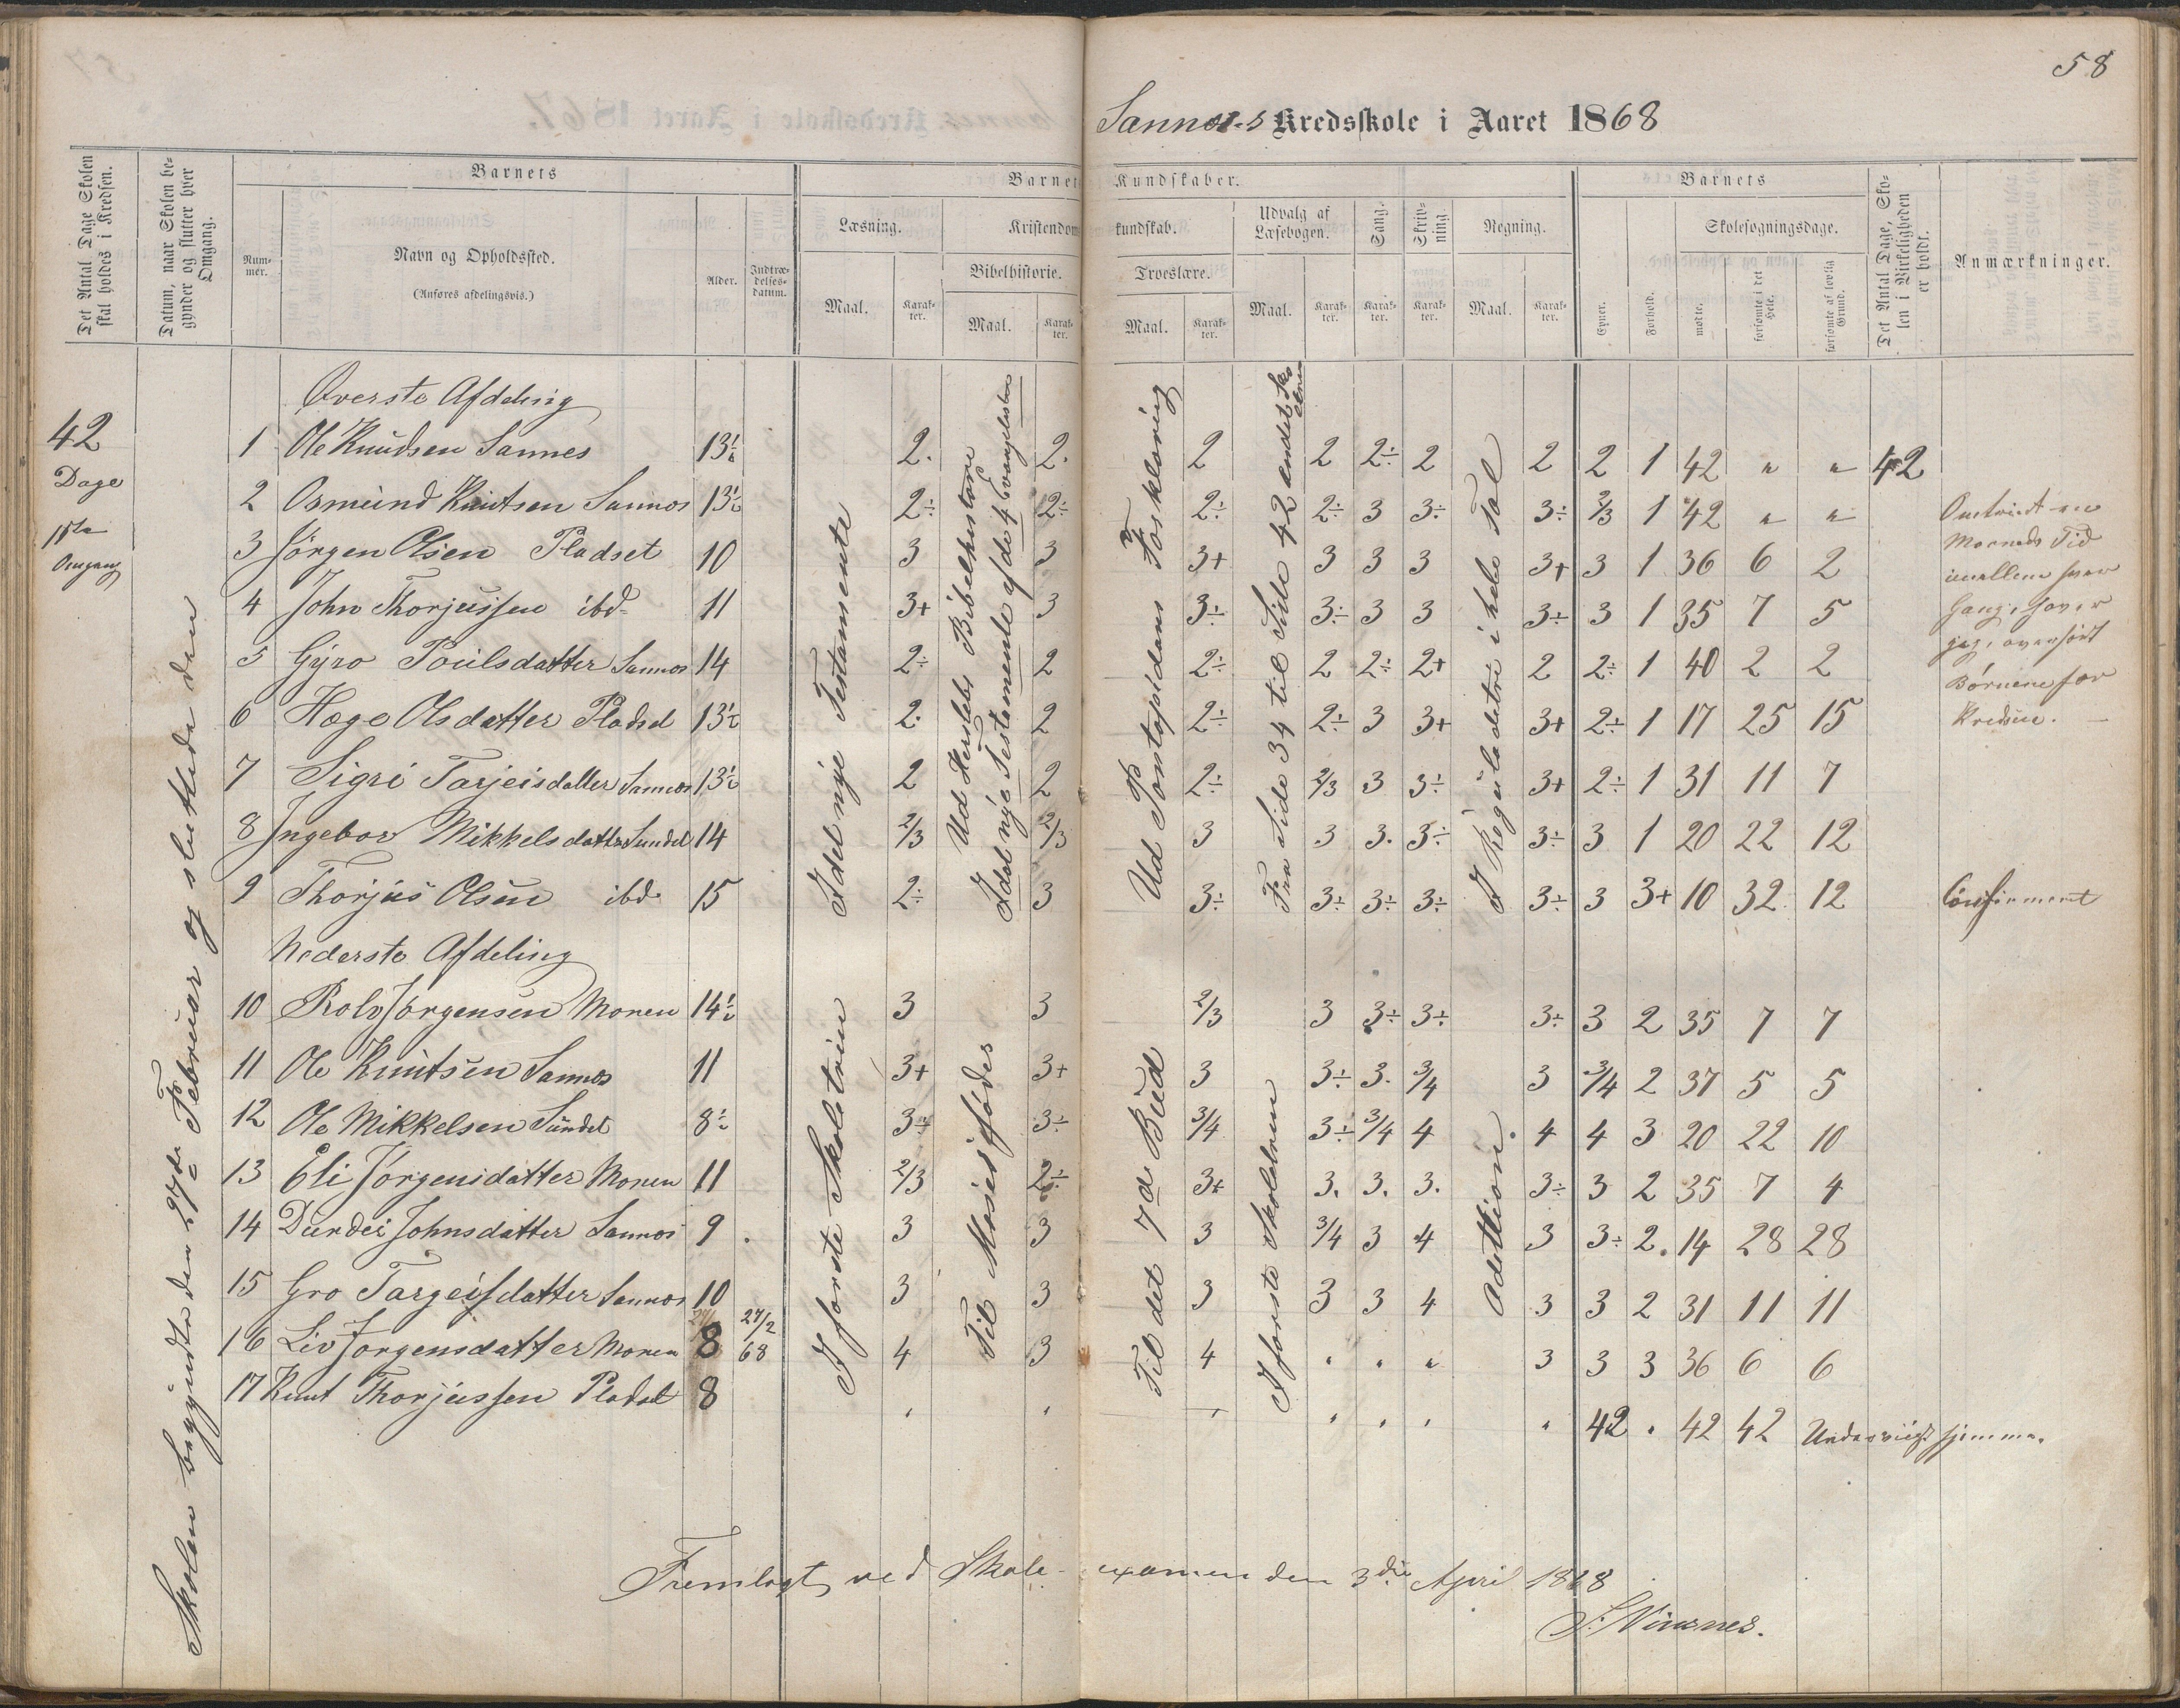 58
Sannes Kredsskole i Aaret 1868
Det Antal Dage Skolen skal holdes i Kredsen.
Datum, naar Skolen begynder og slutter hver Omgang.
Barnets
Nummer.
Navn og Opholdssted.
(Anføres afdelingsvis.)
Alder.
Indtrædelsesdatum.
Barnets Kundskaber.
Læsning.
Maal.
Karakter.
Kristendomskundskab.
Bibelhistorie.
Maal.
Karakter.
Troeslære.
Maal.
Karakter.
Udvalg af Læsebogen.
Maal.
Karakter.
Sang.
Karakter.
Skrivning.
Karakter.
Regning.
Maal.
Karakter.
Barnets
Evner.
Forhold.
Skolesøgningsdage.
mødte.
forsømte i det Hele.
forsømte af lovlig Grund.
Det Antal Dage, Skolen i Virkeligheden er holdt.
Anmærkninger.
42
Dage
1ste
Omgang
Skolen begyndte den 27de Februar og sluttede den
Øverste Afdeling
1 Ole Knudsen Sannes 13½ 2. 2. 2 2 2÷ 2 2 2 1 42 " " 42
2 Osmund Knutsen Sannes 13½ 2÷ 2÷ 2÷ 2÷ 3 3÷ 3÷ 2/3 1 42 " "
3 Jörgen Olsen Pladset 10 3 3 3+ 3 3 3 3+ 3 1 36 6 2
4 John Thorjussen ibd- 11 3+ 3 3÷ 3÷ 3 3 3÷ 3 1 35 7 5
5 Gyro Poulsdatter Sannes 14 2÷ 2 2÷ 2 2÷ 2+ 2 2÷ 1 40 2 2
6 Hæge Olsdatter Pladsd 13½ 2. 2 2÷ 2÷ 3 3+ 3+ 2÷ 1 17 25 15
7 Sigri Tarjeisdatter Sannes 13½ 2 2 2÷ 2/3 3 3÷ 3+ 2÷ 1 31 11 7
8 Ingebor Mikkelsdatter Sundet 14 2/3 2/3 3 3 3. 3÷ 3÷ 3 1 20 22 12
9 Thorjus Olsen ibd- 15 2÷ 3 3÷ 3÷ 3÷ 3÷ 3÷ 3 3+ 10 32 12 Confirmeret
I det nye Testamente
Ud Herslebs Bibelhistorie
I det nye Testamente af de 4 Evangelister
Ud Pontopidans Forklaring
Fra Side 34 til Side 42
I Reguladetri i hele Tal
Omtrint en
Maaneds Tid
imellem hver
Gang, haver
jeg, overhört
Børnene for
Kredsen.
Nederste Afdeling
10 Rolv Jörgensen Monen 14½ 3 3 2/3 3 3÷ 3÷ 3÷ 3 2 35 7 7
11 Ole Knutsen Sannes 11 3+ 3+ 3 3÷ 3. 3/4 3 3/4 2 37 5 5
12 Ole Mikkelsen Sundet 8½ 3÷ 3÷ 3/4 3÷ 3/4 4 4 4 3 20 22 10
13 Eli Jörgensdatter Monen 11 2/3 2÷ 3+ 3. 3. 3. 3÷ 3 2 35 7 4
14 Durdei Johnsdatter Sannes 9 3 3 3 3/4 3 4 3 3÷ 2. 14 28 28
15 Gro Targeisdatter Sannes 10 3 3 3 3 3 4 3 3 2 31 11 11
16 Liv Jorgensdatter Monen 8 27/2 68 4 3 4 " " " 3 3 3 36 6 6
17 Knut Thorjussen Pladsel 8 " " " " " " " 42 " 42 42 Underviist hjemme.
I forste Skoletrin
Til Mosis födes
Til det 7de Bud
I forste Skoletrin
Adettion
Fremlagt ved Skole-examen den 3die April 1868
S. Vinsnes.